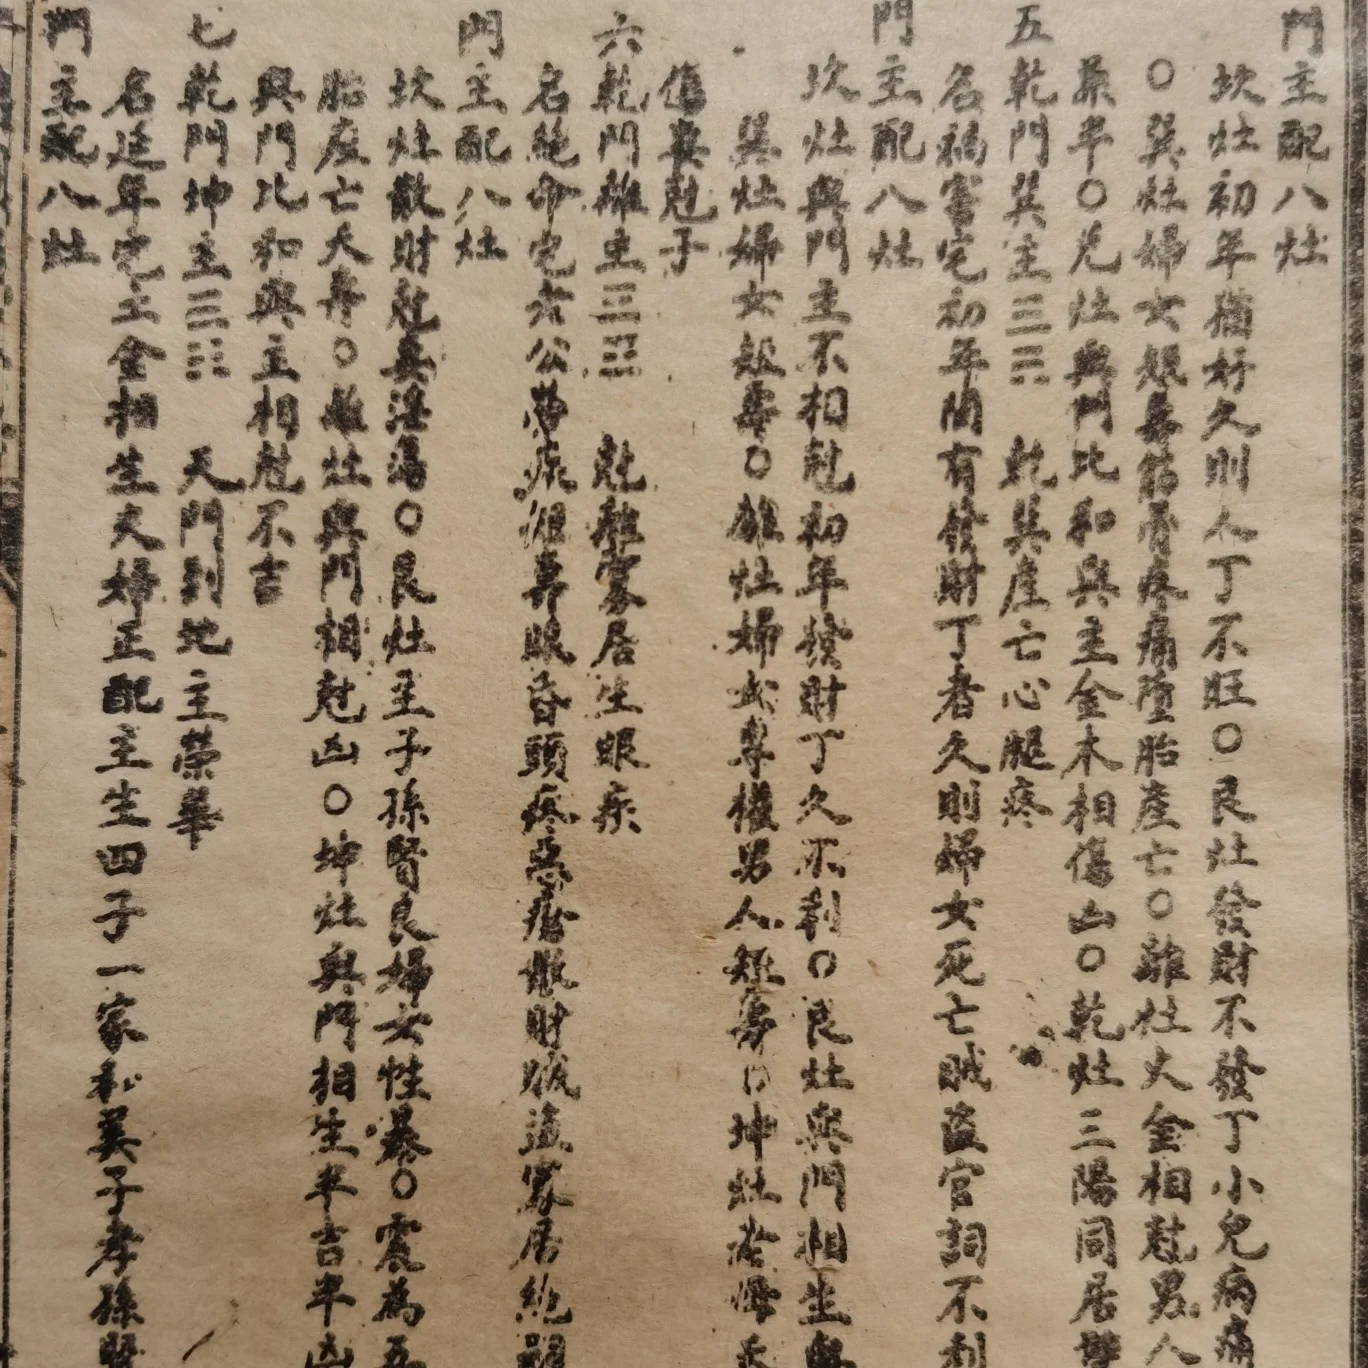 門主配八灶
坎灶初年猶好久則人丁不旺○艮灶發財不發丁小兒病痛
○巽灶婦女短壽筋骨疼痛墮胎產亡○離灶火金相尅男人
半○兌灶與門比和與主金木相傷凶○乾灶三陽同居
五乾門巽主☰☴ 乾巽產亡心腿疼
名禍害宅初年間有發財丁者久則婦女死亡賊盜官詞不利
門主配八灶
坎灶與門主不相尅初年發財丁久不利○艮灶與門相生與
巽灶婦女短壽○離灶婦女專權男人短壽○坤灶老母
傷妻尅子
六乾門離主☰☲ 尅離寡居生眼疾
名絶命宅老公勞疾短壽眼昏頭疼惡瘡散財賊盜寡居絶嗣
門主配八灶
坎灶散財尅妻淫蕩○艮灶主子孫賢良婦女性暴○震為五
胎產亡夭壽○離灶與門相尅凶○坤灶與門相生半吉半凶
與門比和與主相尅不吉
七乾門坤主☰☷ 天門到地主榮華
名延年宅土金相生夫婦正配主生四子一家和美子孝孫賢
門主配八灶